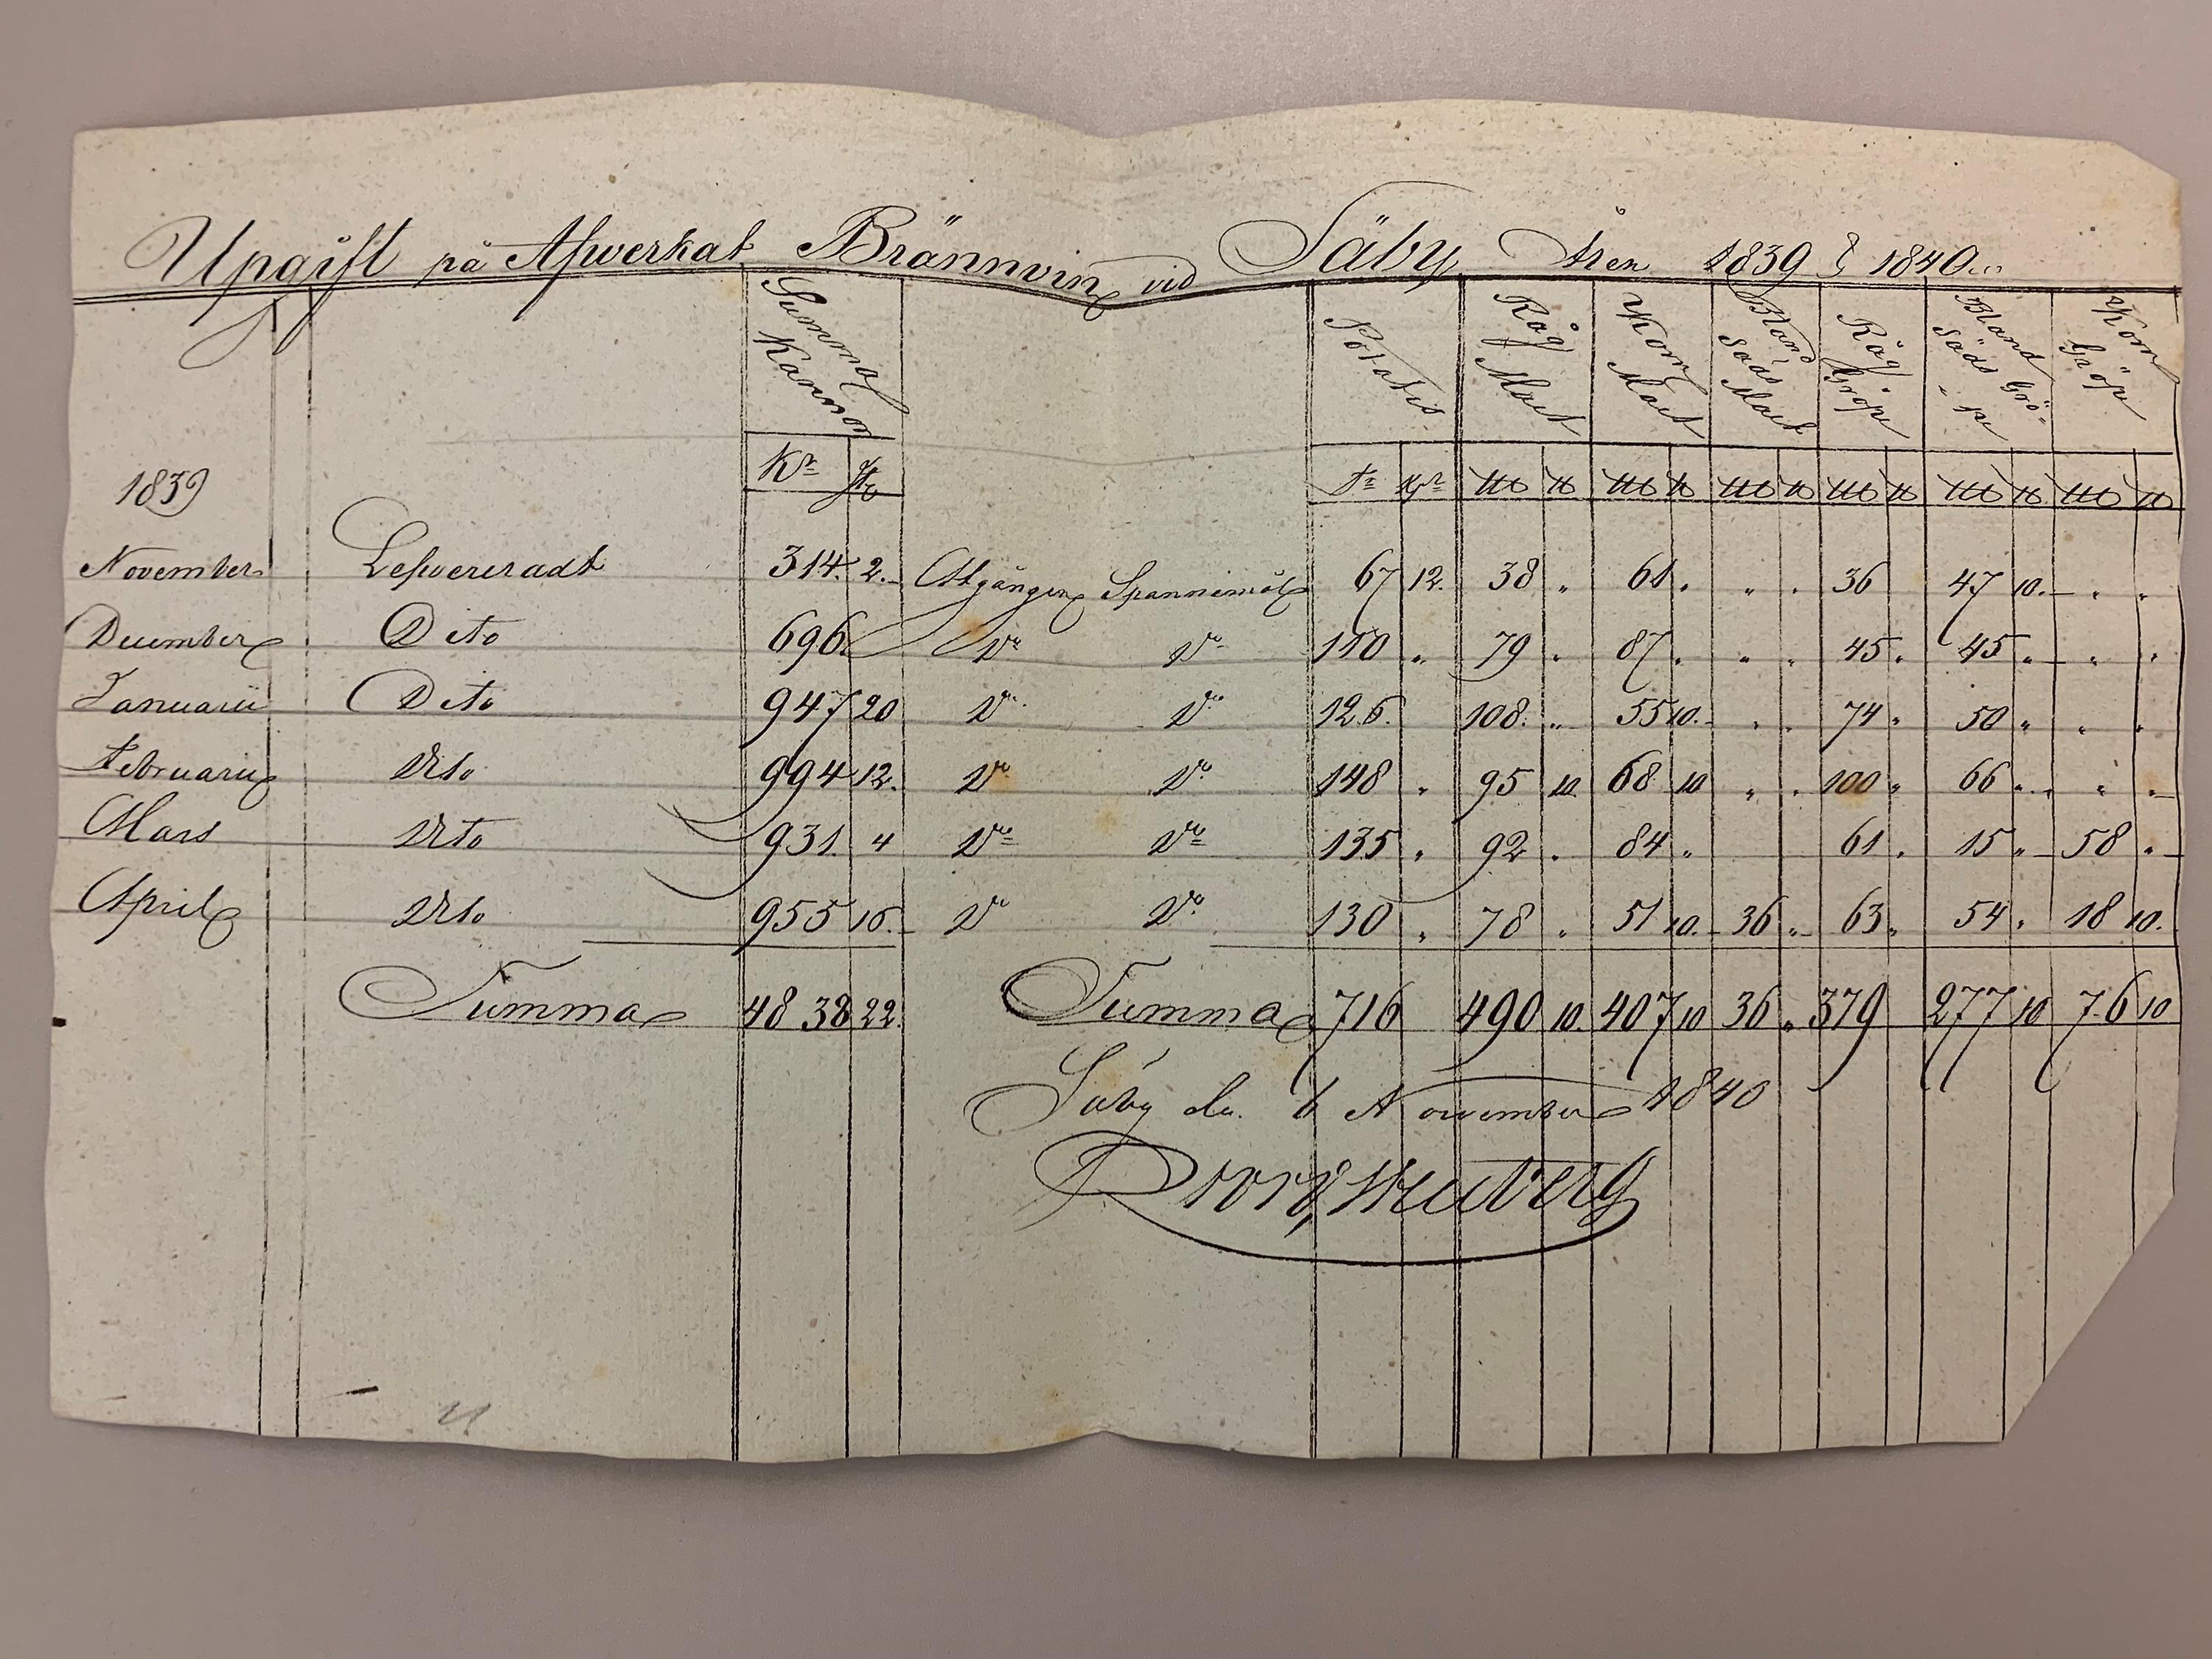 Upgift på Afwerkat Brännvin vid Säby Åren 1839 & 1840...
Summa Kannor Potatis Råg Malt Korn Malt Bland Säds Malt Råg Gröpe Bland Säds Grö-pe Korn Gröpe
1839 Kr
November Lefvereradt 314. 2. Åtgången Spannemål 67 12. 38 " 61 " " " 36 47 10. " "
December Dito 696. Do Do 110 " 79 " 87 " " " 45 " 45 " " "
Januarii Dito 947 20 Do Do 126. 108. " 55 10. " " 74 " 50 " " "
Februarii Dito 994 12. Do Do 148 " 95 10 68 10 " " 100 " 66 " " "
Mars Dito 931. 4 Do Do 135 " 92 " 84 " 61 " 15 " 58 "
April Dito 955 16. Do Do 130 " 78 " 51 10. 36 " 63 " 54 " 18 10.
Summa 48 38 22. Summa 716 490 10. 407 10 36 " 379 277 10 76 10
Säby de. 6 November 1840